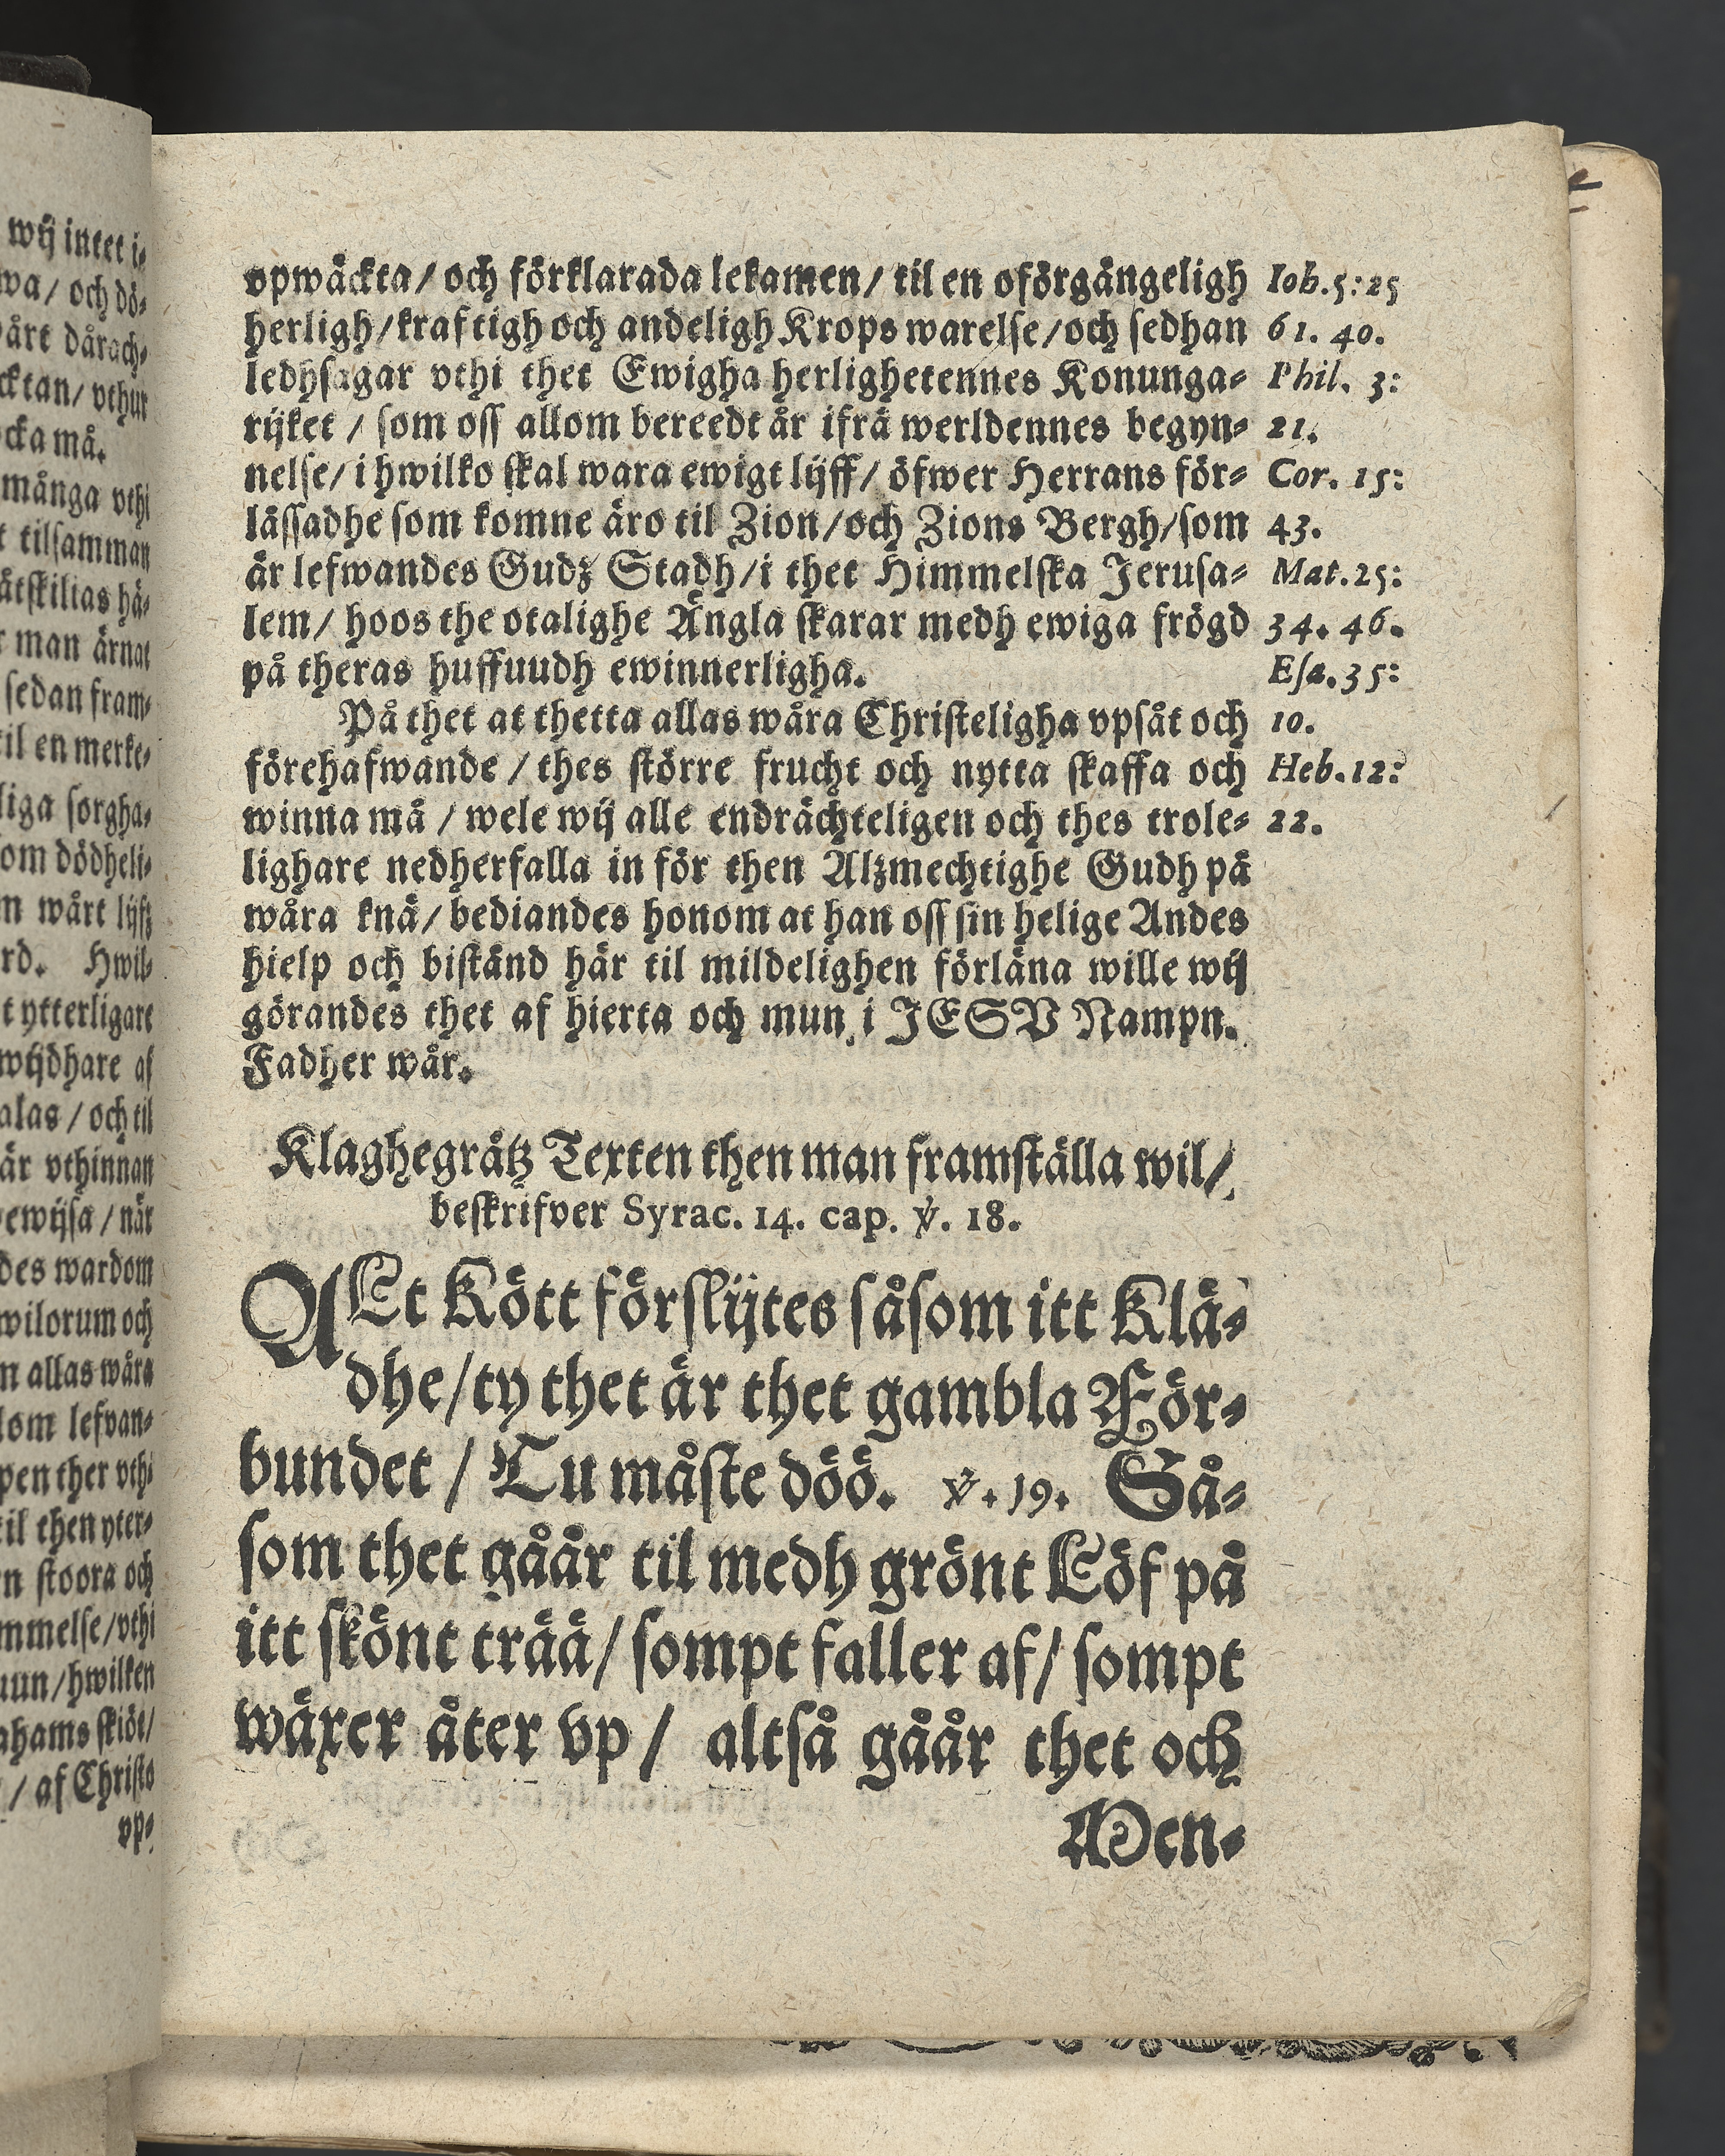 wij intet i-
wa / och dö-
årt dårach-
cktan / vthur
ocka må.
många vthi
t tilsamman
åtskilias hä-
r man ärnat
sedan fram-
til en merke-
liga sorgha-
om dödheli-
n wårt lijfz
rd. Hwil-
t ytterligare
wijdhare af
alas / och til
är vthinnan
ewijsa / når
des wardom
wilorum och
n allas wåra
lom lefvan-
pen ther vthi
til then yter-
n stoora och
mmelse / vthi
uun / hwilken
ahams skiöt /
/ af Christo
vp-
vpwäckta / och förklarada lekamen / til en oförgängeligh
herligh / kraftigh och andeligh Krops warelse / och sedhan
ledhsagar vthi thet Ewigha herlighetennes Konunga-
rijket / som oss allom bereedt är ifrå werldennes begyn-
nelse / i hwilko skal wara ewigt lijff / öfwer Herrans för-
låssadhe som komne äro til Zion / och Zions Bergh / som
är lefwandes Gudz Stadh / i thet Himmelska Jerusa-
lem / hoos the otalighe Ängla skarar medh ewiga frögd
på theras huffuudh ewinnerligha.
På thet at thetta allas wåra Christeligha vpsåt och
förehafwande / thes större frucht och nytta skaffa och
winna må / wele wij alle endrächteligen och thes trole-
lighare nedherfalla in för then Alzmechtighe Gudh på
wåra knä / bediandes honom at han oss sin helige Andes
hielp och bistånd här til mildelighen förläna wille wij
görandes thet af hierta och mun i JESV Nampn.
Fadher wår.
Iob. 5: 25
61. 40.
Phil. 3:
21.
Cor. 15:
43.
Mat. 25:
34. 46.
Esa. 35:
10.
Heb. 12:
22.
Klaghegråtz Texten then man framställa wil /
beskrifver Syrac. 14. cap. ℣. 18.
ALt Kött förslijtes såsom itt Klä-
dhe / ty thet är thet gambla För-
bundet / Tu måste döö. ℣. 19. Så-
som thet gåår til medh grönt Löf på
itt skönt trää / sompt faller af / sompt
wäxer åter vp / altså gåår thet och
Men-